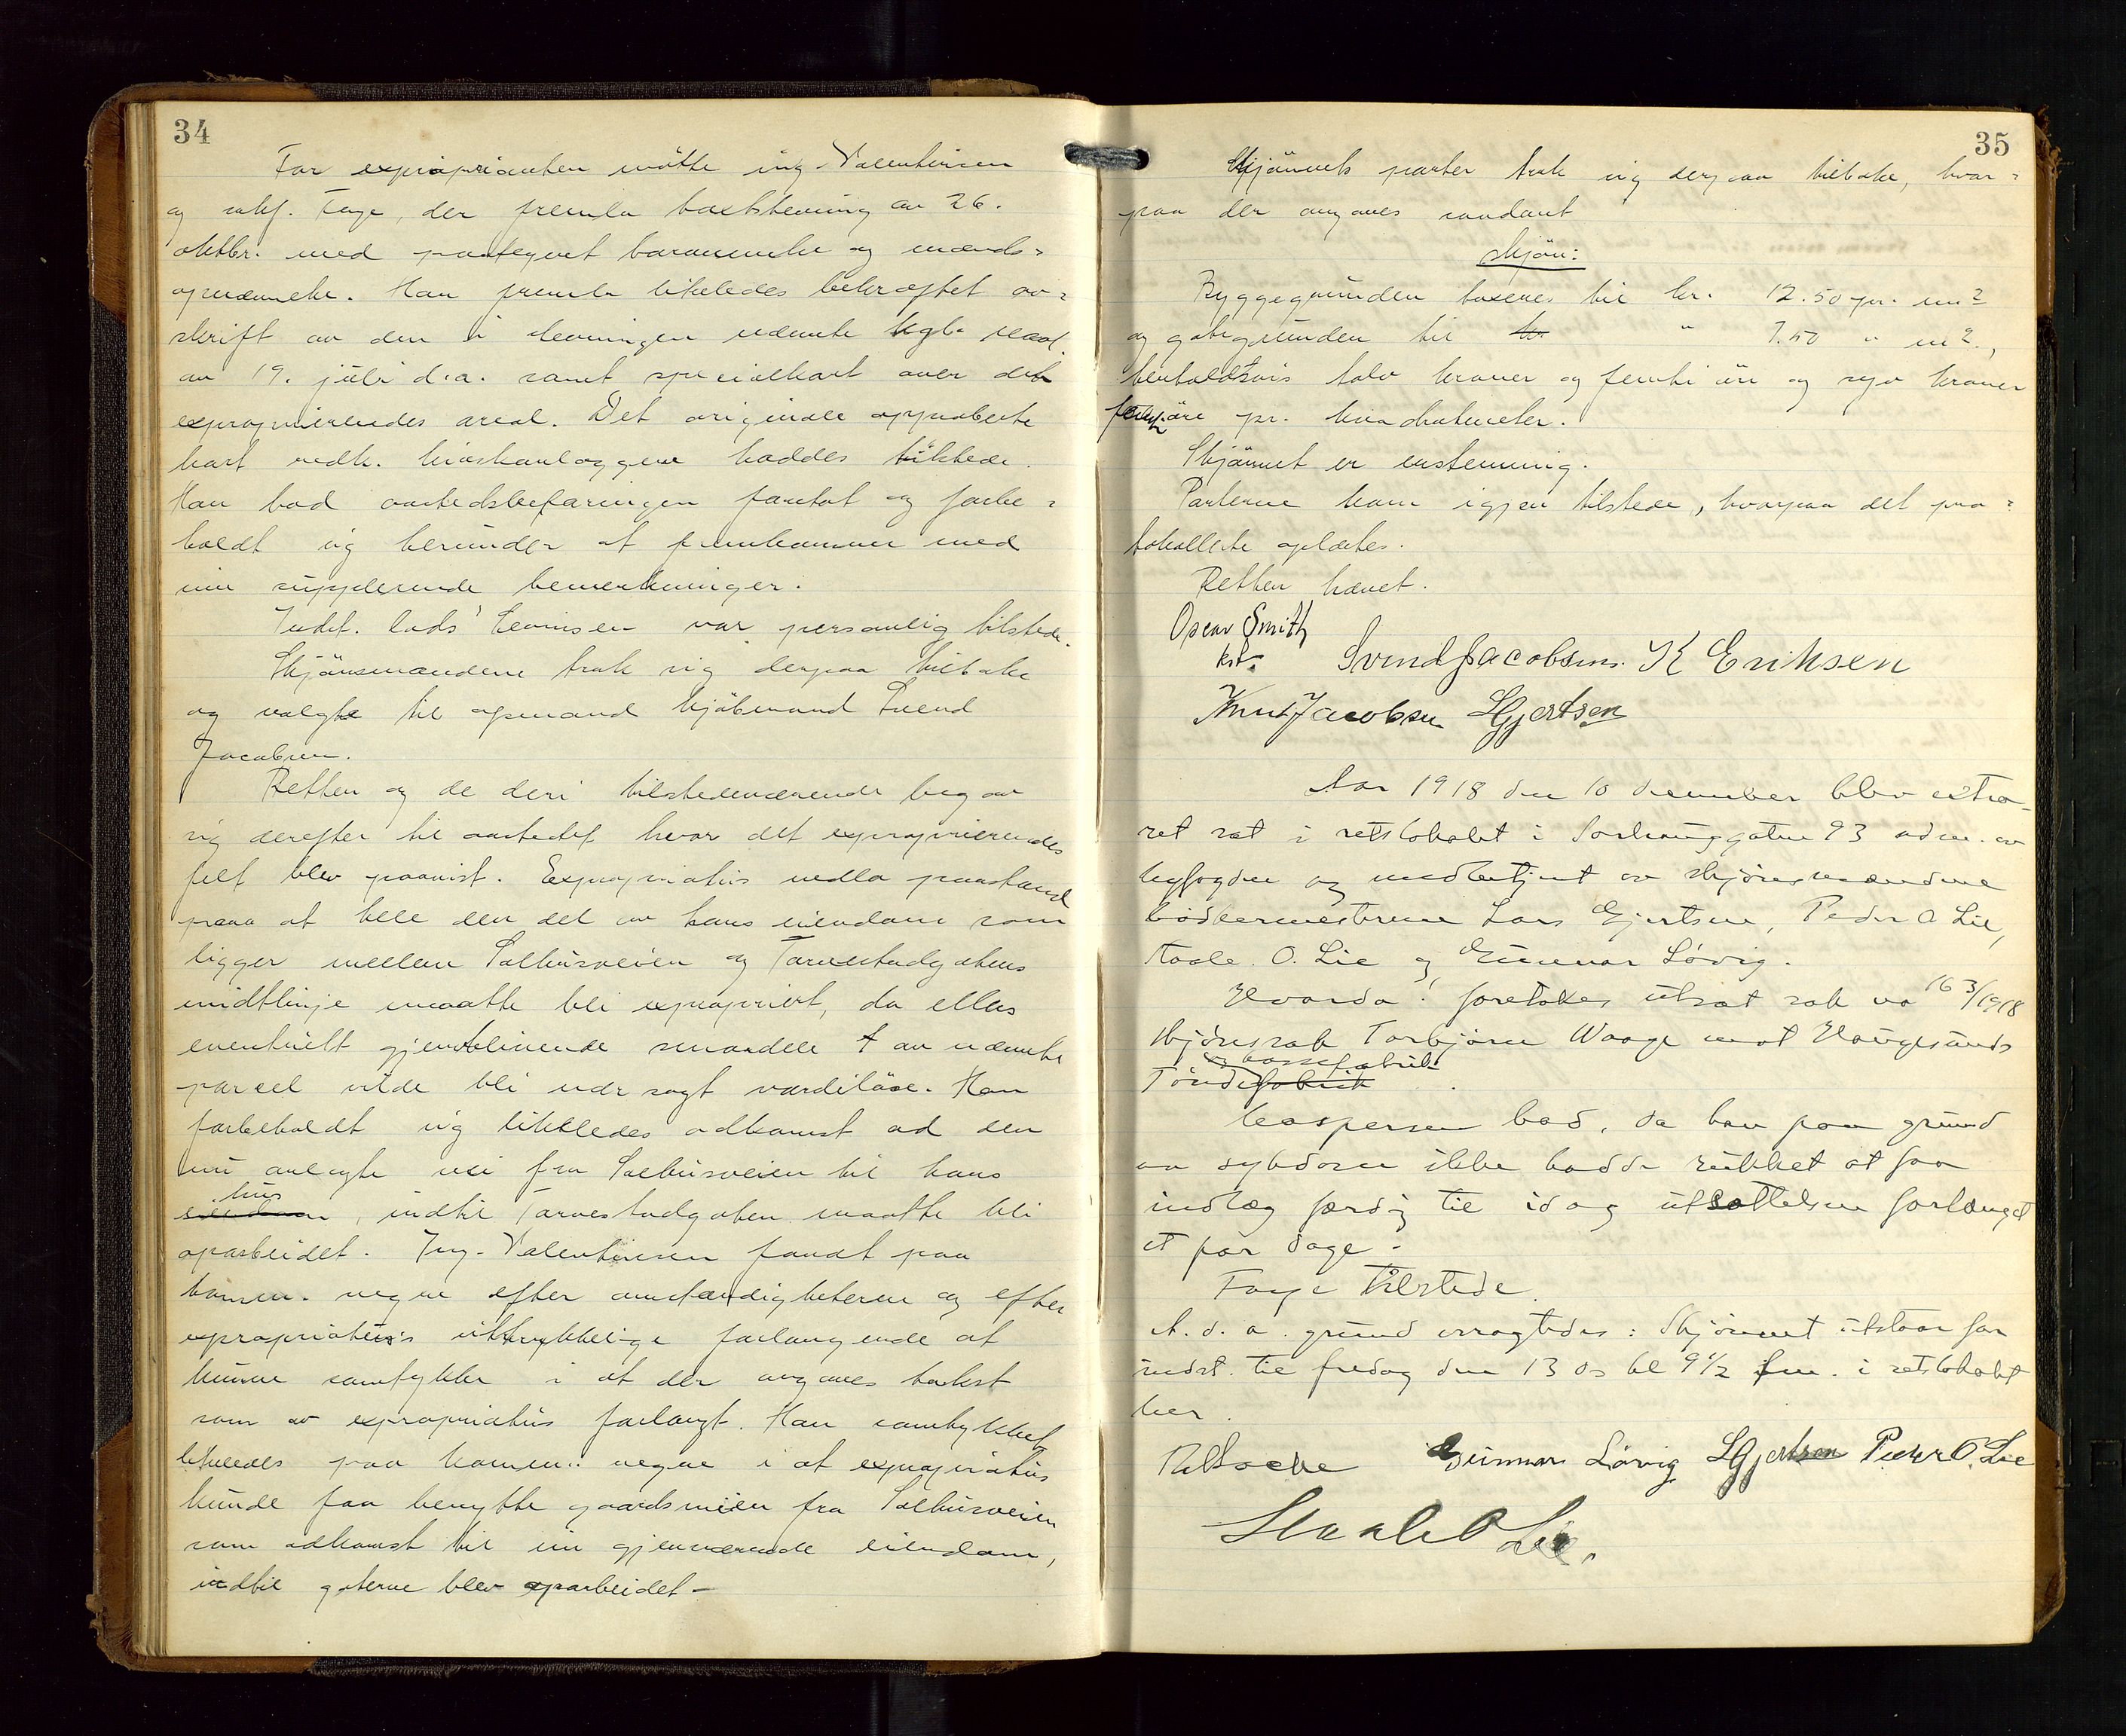 34
For exproprianten møtte ing. Valentinsen
og sakf. Fage, der fremla takststevning av 26.
oktbr. med paategnet varammelse og mands-
opnævnelse. Han fremla likeledes bekræftet av-
skrift av den i stevningen nævnte kgl. resol.
av 19. juli d.a. samt specialkart over det
exproprierendes areal. Det originale approberte
kart vedk. anlæggene haddes tilstede.
Han bad aastedsbefaringen foretat og forbe-
holdt sig herunder at fremkomme med
sine supplerende bemerkninger.
Indst. lods Sevinsen var personlig tilstede.
Skjønsmændene trak sig derpaa tilbake
og valgte til opmand kjøbmand Svend
Jacobsen.
Retten og de deri tilstedeværende begav
sig derefter til aastedet hvor det exproprierendes
felt blev paavist. Expropriatus nedla paastand
paa at hele den del av hans eiendom som
ligger mellem Salhusveien og Tarvestadgatens
midtlinje maatte bli expropriert, da ellers
eventuelt gjenblivende smaadele av nævnte
parcel vilde bli nær sagt værdiløse. Han
forbeholdt sig likeledes adkomst ad den
nu anlagte vei fra Salhusveien til hans
hus
eiendom, indtil Tarvestadgaten maatte bli
oparbeidet. Ing. Valentinsen fandt paa
komm. vegne efter omstændigheterne og efter
expropriatus's uttrykkelige forlangende at
kunne samtykke i at der avgaves takst
som av expropriatus forlangt. Han samtykket
likeledes paa komm. vegne i at expropriatus
kunde faa benytte gaardsveien fra Salhusveien
som adkomst til sin gjenværende eiendom,
indtil gaterne blev oparbeidet —
35
Skjønnets parter trak sig derpaa tilbake, hvor-
paa der avgaves saadant
skjøn:
Byggegrunden taxeres til kr. 12.50 pr. m2
og gategrunden til kr. " 7.50 " m2.,
henholdsvis tolv kroner og femti øre og syv kroner
femti øre pr. kvadratmeter.
Skjønnet er enstemmig.
Parterne kom igjen tilstede, hvorpaa det pro-
tokollerte oplæstes.
Retten hævet.
Oscar Smith
kst. Svend Jacobsen. K Eriksen
Knut Jacobsen LGjertsen
Aar 1918 den 10 december blev extra-
ret sat i retslokalet i Sørhauggaten 93 adm. av
byfogden og medbetjent av skjønsmændene
bødkermesterne Lars Gjertsen, Peder O Lie,
Staale. O. Lie og Gunnar Løvig.
Hvorda! foretokes utsat sak no 16 3/1918
Skjønssak Torbjørn Waage mot Haugesunds
og kassefabrik
Tøndefabrik.
Kaspersen bad, da han paa grund
av sykdom ikke hadde rukket at faa
indlæg færdig til idag utsættelsen forlænget
et par dage -
Fage tilstede.
A. d. a. grund avsagtedes: Skjønnet utstaar for
indst. til fredag den 13 ds kl 9 1/2 fm. i retslokalet
her.
Gunnar Løvig LGjertsen Peder O. Lie
Staale O Lie.